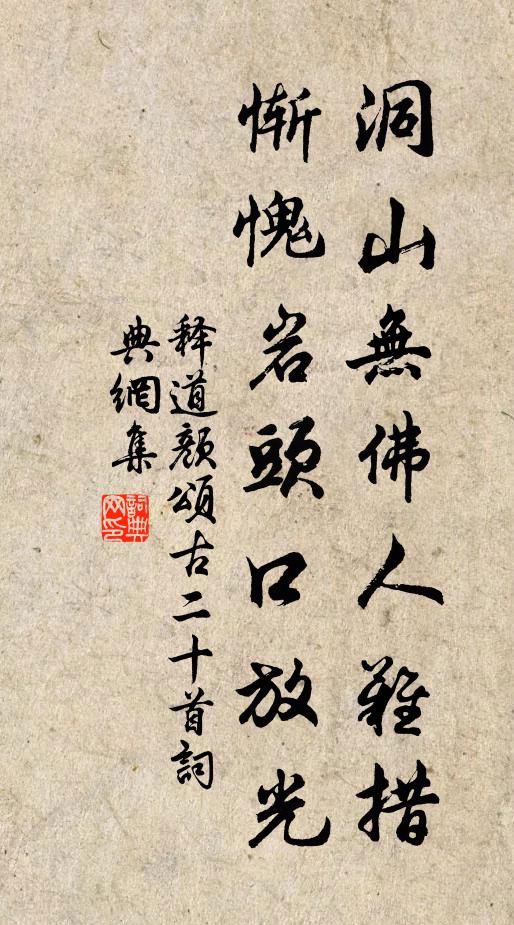 洞山無佛人難措
慚愧岩頭口放光
释道颜頌古二十首詞
典網集
詞典
网印